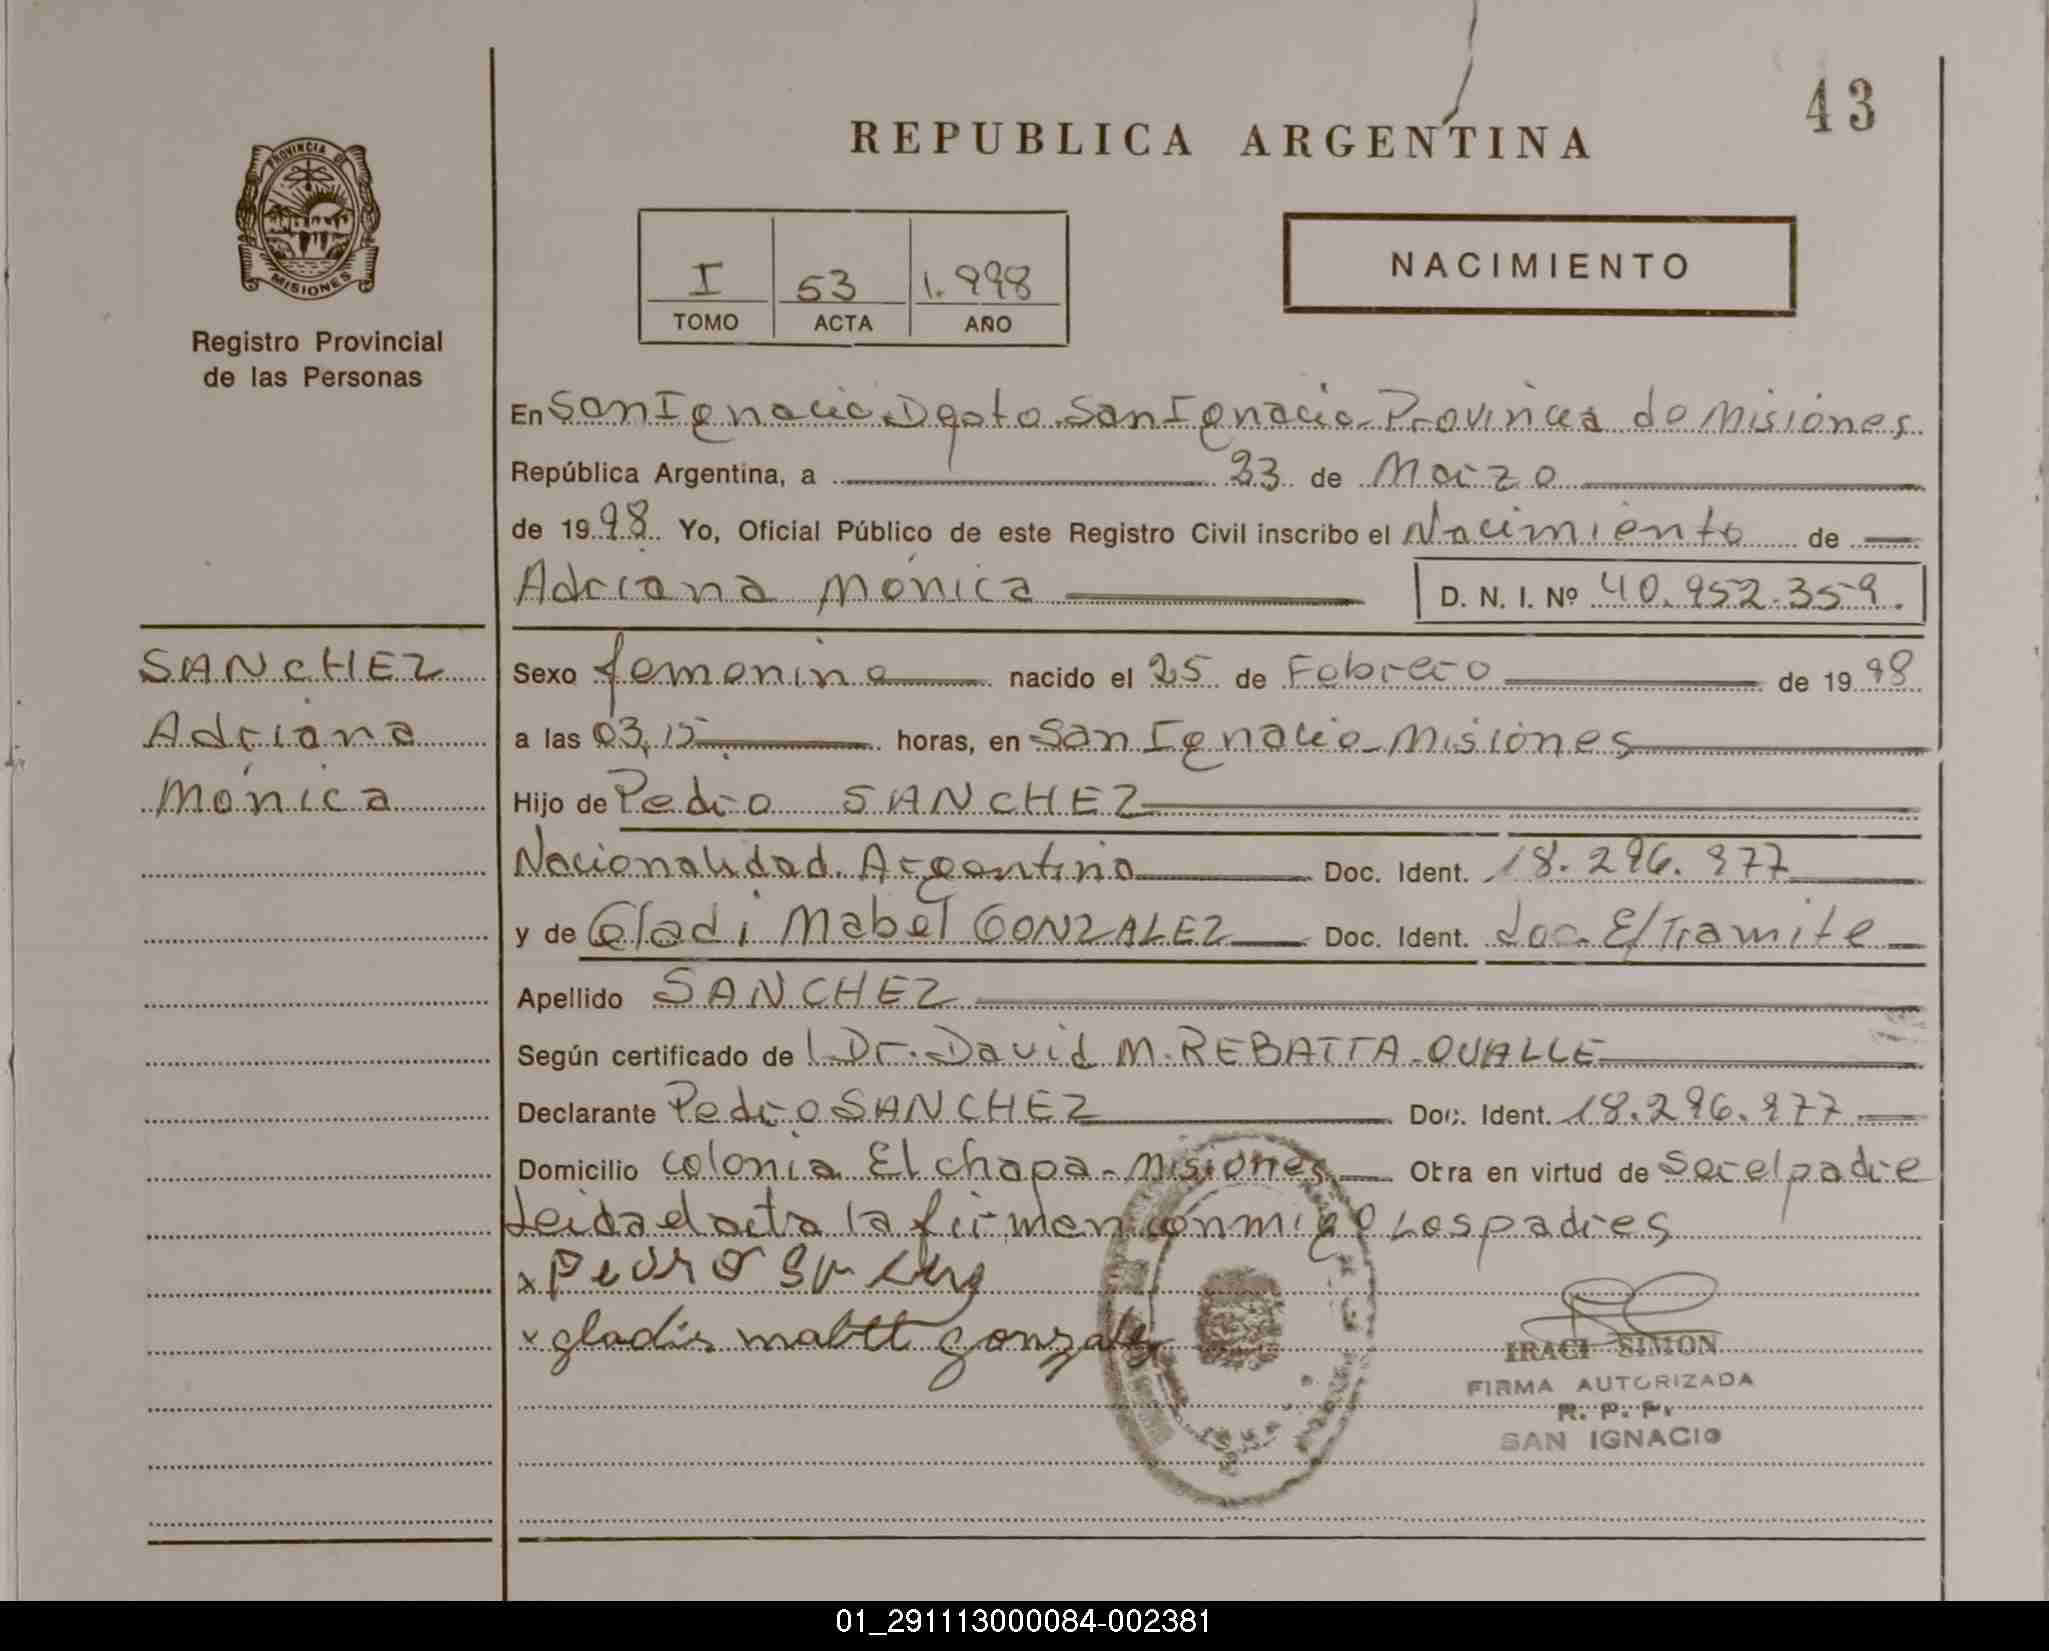 43
REPUBLICA ARGENTINA
PROVINCIA DE
MISIONES
Registro Provincial
de las Personas
I 53 1.998
TOMO ACTA AÑO
NACIMIENTO
En San Ignacio Dpto San Ignacio Provincia de Misiones
República Argentina, a 23 de Marzo
de 1998 Yo, Oficial Público de este Registro Civil inscribo el Nacimiento de
Adriana Mónica D. N. I. Nº 40.952.359.
SANCHEZ
Adriana
Mónica
Sexo femenino nacido el 25 de Febrero de 1998
a las 03,15 horas, en San Ignacio Misiones
Hijo de Pedro SANCHEZ
Nacionalidad Argentina Doc. Ident. 18.296.977
y de Gladi Mabel GONZALEZ Doc. Ident. doc. E/Tramite
Apellido SANCHEZ
Según certificado de l Dr. David M. REBATTA OVALLE
Declarante Pedro SANCHEZ Doc. Ident. 18.296.977
Domicilio Colonia El chapa - Misiones Obra en virtud de ser el padre
Leida el acta la firman conmigo Los padres
x Pedro
x gladis mabel gonzalez
IRACI SIMON
FIRMA AUTORIZADA
R. P. P.
SAN IGNACIO
01_291113000084-002381